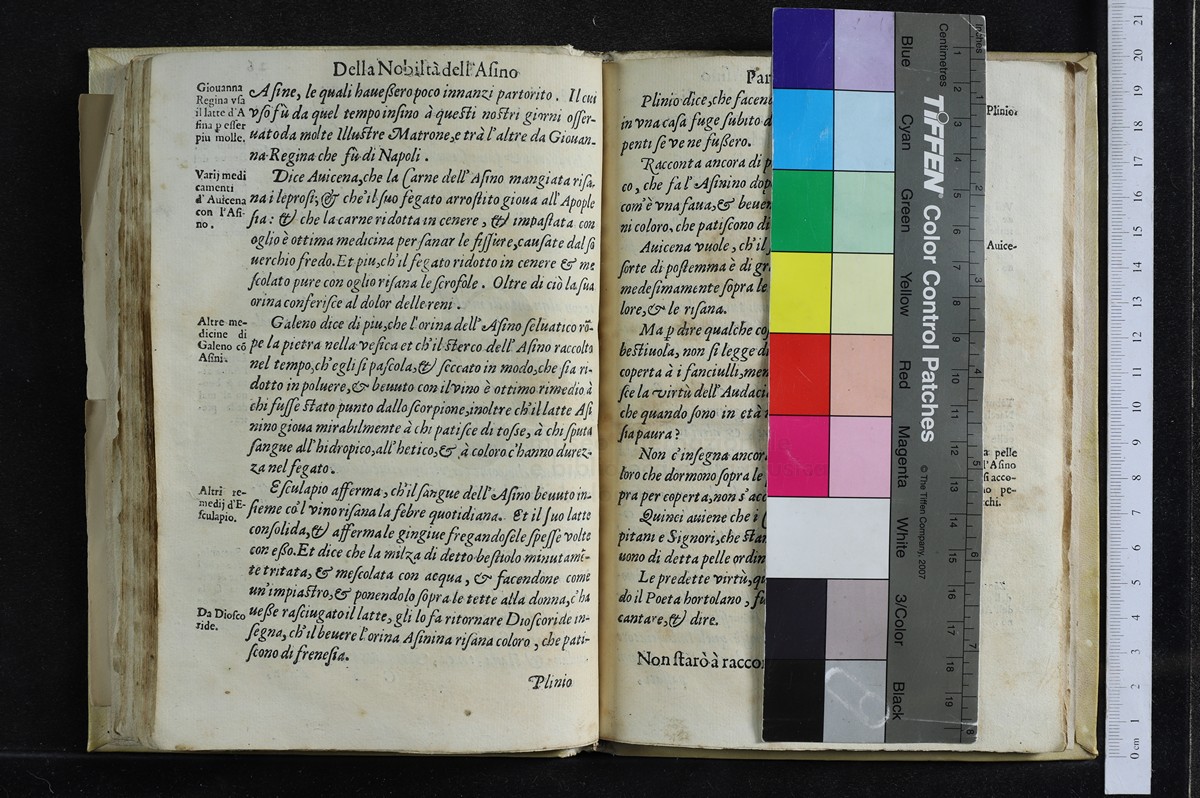 Della Nobiltà dell'Asino
Giouanna
Regina vsa
il latte d'A
sina p esser
piu molle.
Asine, le quali haueßero poco innanzi partorito. Il cui
vso fù da quel tempo insino à questi nostri giorni osser-
uato da molte Illustre Matrone, e trà l'altre da Giouan-
na Regina che fù di Napoli.
Varij medi
camenti
d'Auicena
con l'Asi-
no.
Dice Auicena, che la Carne dell'Asino mangiata risa,
na i leprosi; & che'il suo fegato arrostito gioua all'Apople
sia: & che la carne ridotta in cenere, & impastata con
oglio è ottima medicina per sanar le fissure, causate dal so
uerchio fredo. Et piu, ch'il fegato ridotto in cenere & me
scolato pure con oglio risana le scrofole. Oltre di ciò la sua
orina conferisce al dolor delle reni.
Altre me-
dicine di
Galeno cõ
Asini.
Galeno dice di piu, che l'orina dell'Asino seluatico rõ-
pe la pietra nella vesica et ch'il sterco dell'Asino raccolto
nel tempo, ch'egli si pascola, & seccato in modo, che sia ri-
dotto in poluere, & beuuto con il vino è ottimo rimedio à
chi fusse stato punto dallo scorpione; inoltre ch'il latte Asi
nino gioua mirabilmente à chi patisce di toße, à chi sputa
sangue all'hidropico, all'hetico, & à coloro c'hanno durez-
za nel fegato.
Altri re-
medij d'E-
sculapio.
Esculapio afferma, ch'il sangue dell'Asino beuuto in-
sieme co'l vino risana la febre quotidiana. Et il suo latte
consolida, & afferma le gingiue fregandosele spesse volte
con eßo. Et dice che la milza di detto bestiolo minutamē-
te tritata, & mescolata con acqua, & facendone come
un'impiastro, & ponendolo sopra le tette alla donna, c'ha
Da Diosco
ride.
ueße rasciugato il latte, gli lo fa ritornare Dioscoride in-
segna, ch'il beuere l'orina Asinina risana coloro, che pati-
scono di frenesia.
Plinio
Par
Plinio dice, che facen
in vna casa fuge subito d
penti se ve ne fußero.
Plinio.
Racconta ancora di p
co, che fa l'Asinino dop
com'è vna faua, & beuen
ni coloro, che patiscono di
Auicena vuole, ch'il
sorte di postemma è di gr
medesimamente sopra le
lore, & le risana.
Auice-
Ma p dire qualche co
bestiuola, non si legge d
coperta à i fanciulli, men
sce la virtù dell'Audaci
che quando sono in età
sia paura?
Non c'insegna ancor
loro che dormono sopra le
pra per coperta, non s'acc
a pelle
l'Asino
si acco-
no pe-
chi.
Quinci auiene che i
pitani e Signori, che stan
uono di detta pelle ordin
Le predette virtù, qu
do il Poeta hortolano, fu
cantare, & dire.
Non starò à raccon
Blue
Cyan
Green
Yellow
Red
Magenta
White
3/Color
Black
TIFFEN Color Control Patches
© The Tiffen Company, 2007
Centimetres
Inches
1 2 3 4 5 6 7 8 9 10 11 12 13 14 15 16 17 18 19
1 2 3 4 5 6 7 8
21 20 19 18 17 16 15 14 13 12 11 10 9 8 7 6 5 4 3 2 1 0 cm